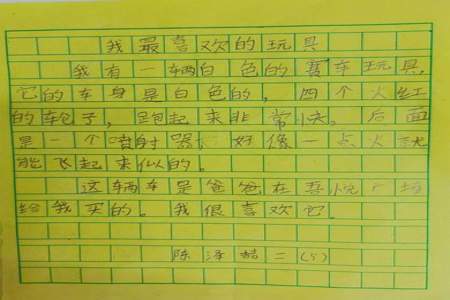 我最喜欢的玩具
我有一辆白色的赛车玩具，
它的车身是白色的，四个火红
的车包子，跑起来非常快，后面
是一个喷射器，好像一点火就
能飞起来似的。
这辆车是爸爸在喜悦广场
给我买的。我很喜欢它。
陈泽喆二(5)